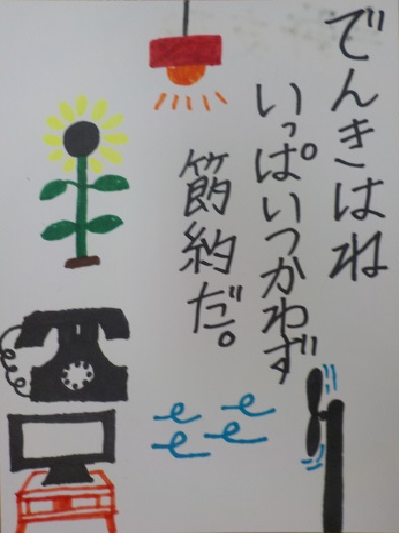 でんきはね
いっぱいつかわず
節約だ。